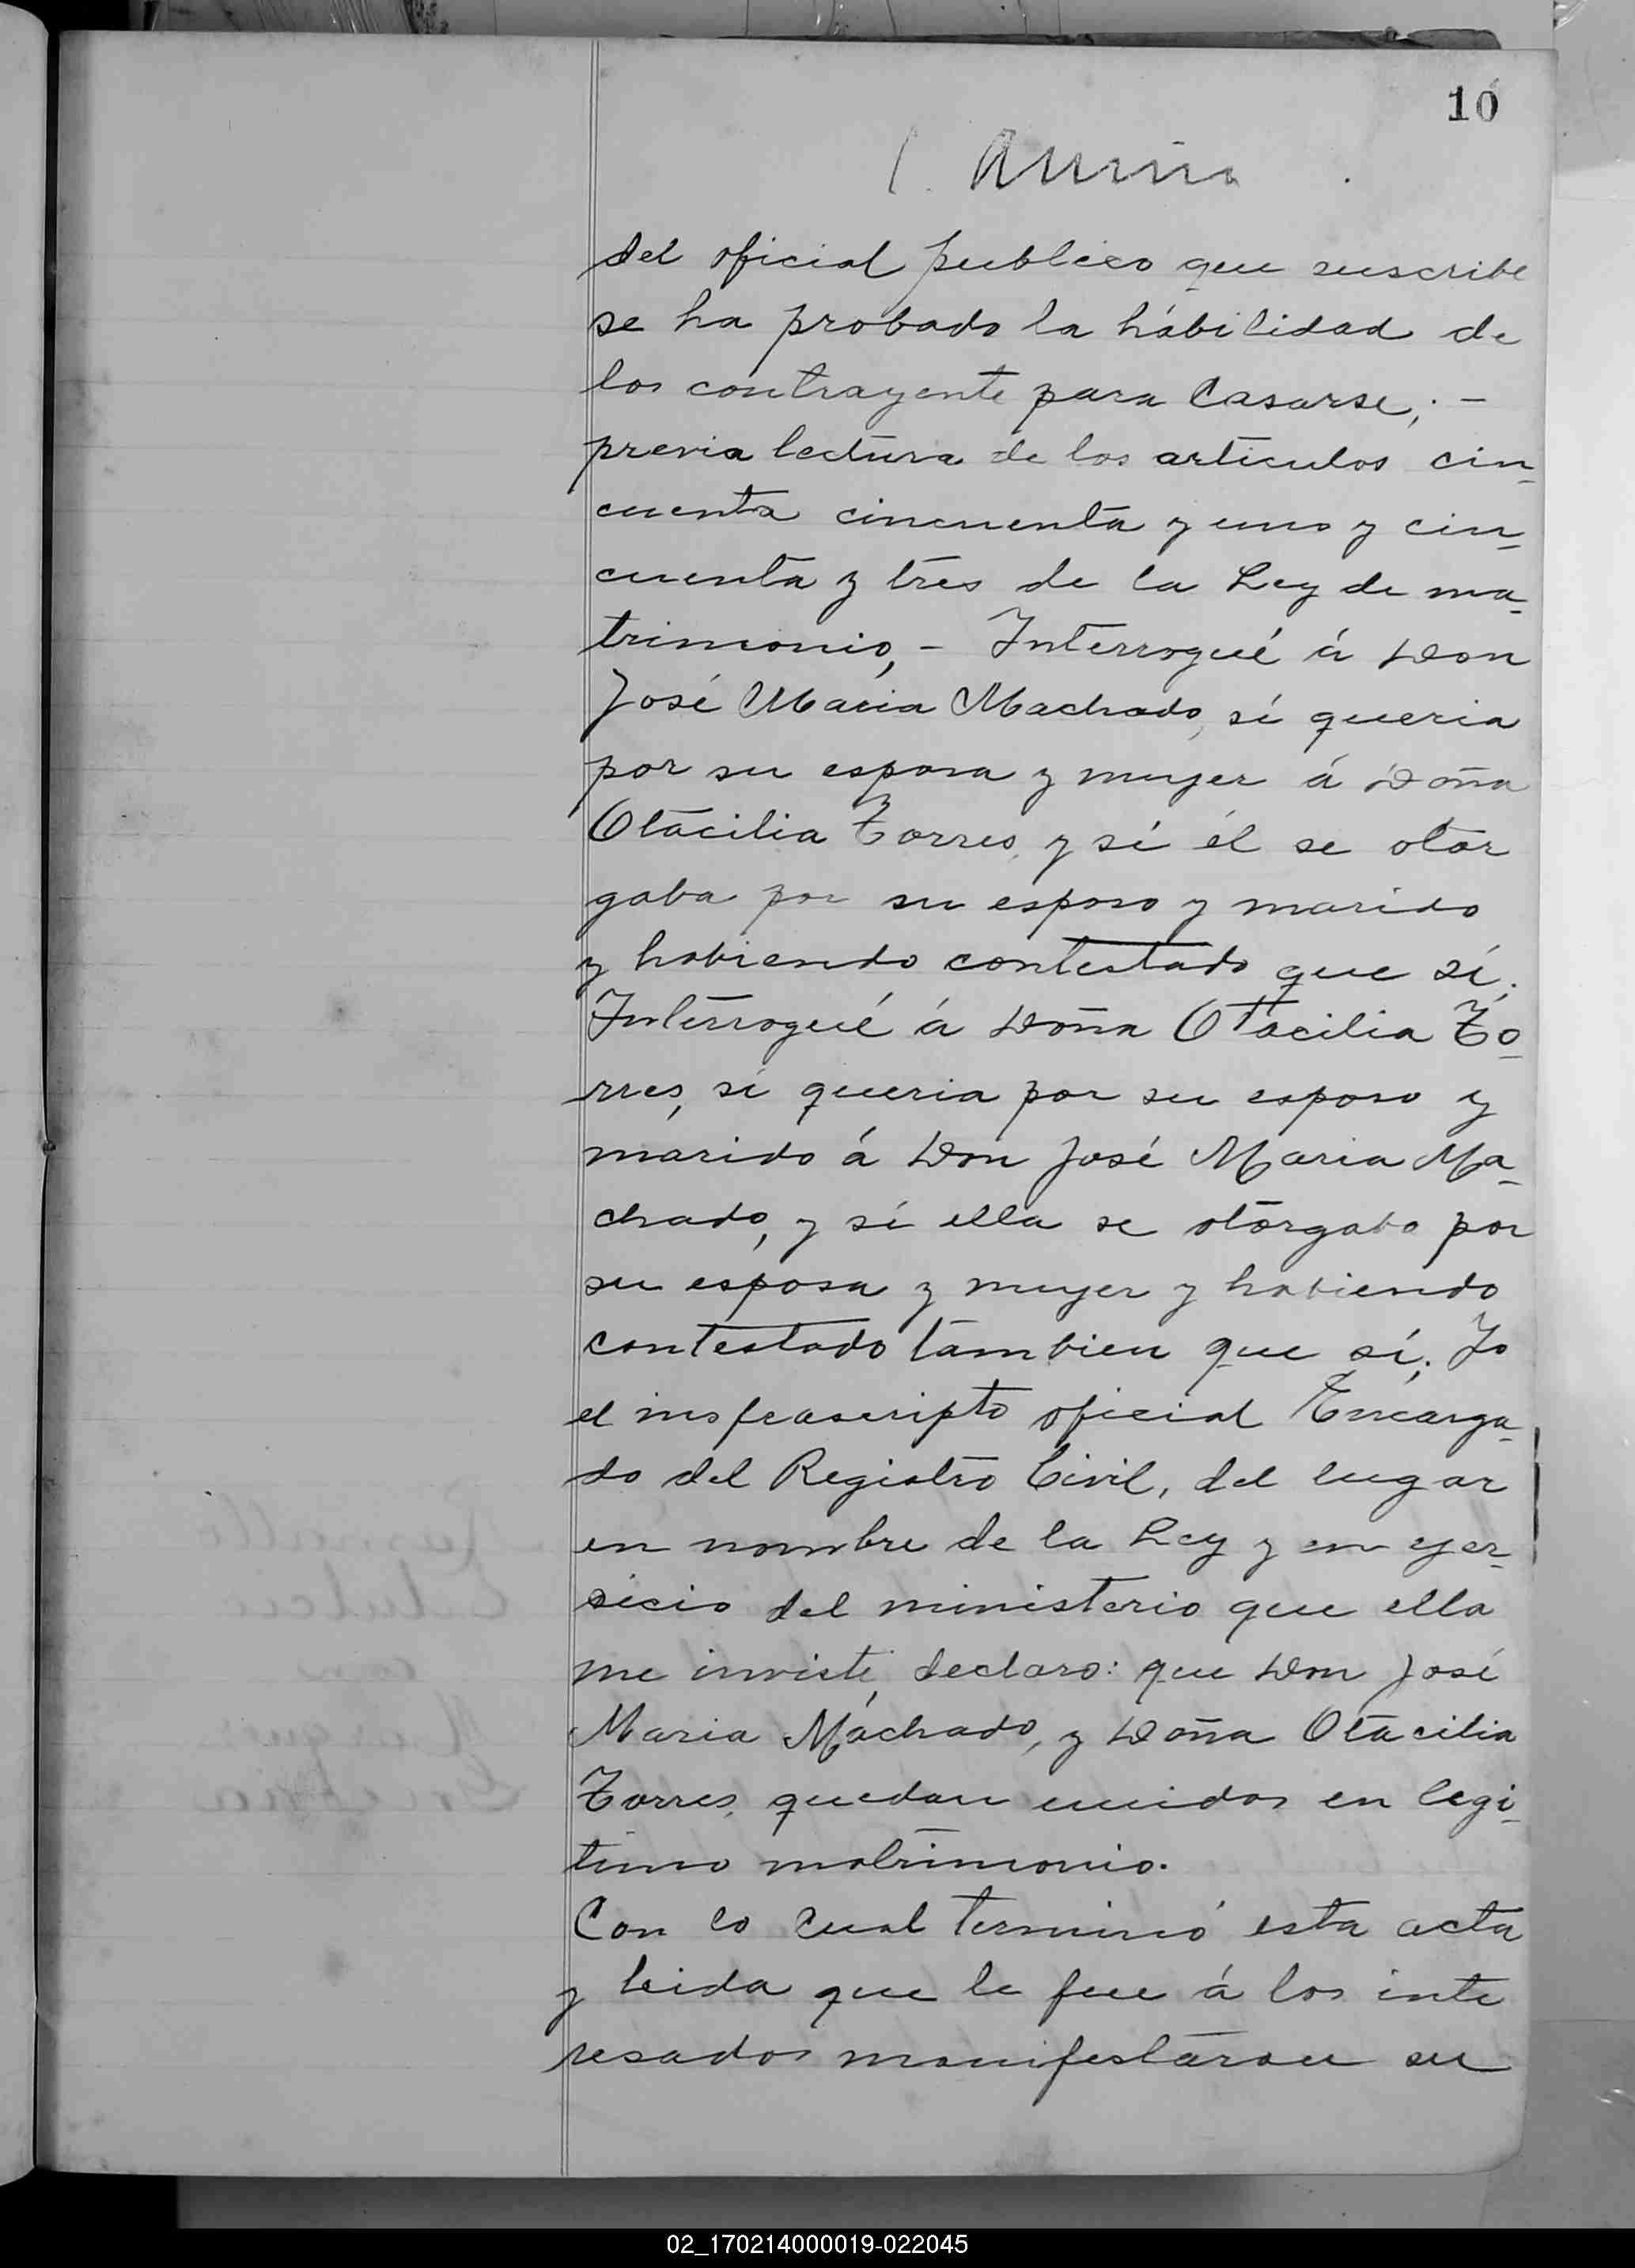 10
del oficial publico que suscribe
se ha probado la hábilidad de
los contrayente para Casarse; -
previa lectura de los articulos cin-
cuenta cincuenta y uno y cin-
cuenta y tres de la Ley de ma-
trimonio, - Interrogué á Don
José Maria Machado, sí queria
por su esposa y mujer á Doña
Otacilia Torres, y sí él se otor
gaba por su esposo y marido
y habiendo contestado que sí;
Interrogué á Doña Otacilia To-
rres, sí queria por su esposo y
marido á Don José Maria Ma-
chado, y sí ella se otorgaba por
su esposa y mujer y habiendo
contestado tambien que sí; Yo
el insfrascripto oficial Encarga-
do del Registro Civil, del lugar
en nombre de la Ley y en ejer-
sicio del ministerio que ella
me inviste, declaro: que Don José
Maria Machado, y Doña Otacilia
Torres, quedan unidos en legi-
timo matrimonio.
Con lo cual terminó esta acta
y leida que le fue á los inte
resados manifestaron su
02_170214000019-022045